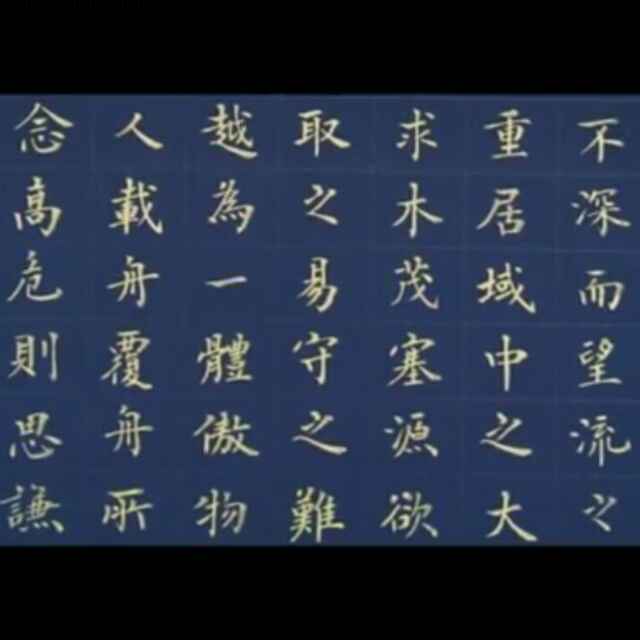 不深而望流之
重居域中之大
求木茂塞源欲
取之易守之難
越為一體傲物
人載舟覆舟所
念高危則思謙